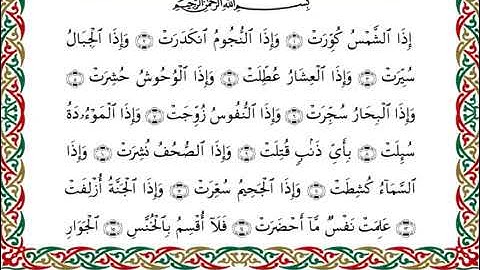 بِسْمِ ٱللَّهِ ٱلرَّحْمَٰنِ ٱلرَّحِيمِ
إِذَا ٱلشَّمْسُ كُوِّرَتْ ۝١ وَإِذَا ٱلنُّجُومُ ٱنكَدَرَتْ ۝٢ وَإِذَا ٱلْجِبَالُ
سُيِّرَتْ ۝٣ وَإِذَا ٱلْعِشَارُ عُطِّلَتْ ۝٤ وَإِذَا ٱلْوُحُوشُ حُشِرَتْ ۝٥
وَإِذَا ٱلْبِحَارُ سُجِّرَتْ ۝٦ وَإِذَا ٱلنُّفُوسُ زُوِّجَتْ ۝٧ وَإِذَا ٱلْمَوْءُۥدَةُ
سُئِلَتْ ۝٨ بِأَىِّ ذَنۢبٍ قُتِلَتْ ۝٩ وَإِذَا ٱلصُّحُفُ نُشِرَتْ ۝١٠ وَإِذَا
ٱلسَّمَآءُ كُشِطَتْ ۝١١ وَإِذَا ٱلْجَحِيمُ سُعِّرَتْ ۝١٢ وَإِذَا ٱلْجَنَّةُ أُزْلِفَتْ
۝١٣ عَلِمَتْ نَفْسٌ مَّآ أَحْضَرَتْ ۝١٤ فَلَآ أُقْسِمُ بِٱلْخُنَّسِ ۝١٥ ٱلْجَوَارِ